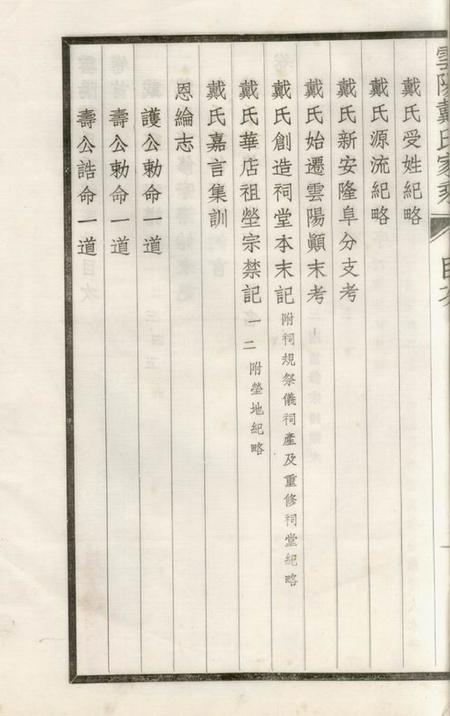 雲陽戴氏家乘
目次
戴氏受姓紀略
戴氏源流紀略
戴氏新安隆阜分支考
戴氏始遷雲陽顚末考
戴氏創造祠堂本末記 附祠規祭儀祠產及重修祠堂紀略
戴氏華店祖塋宗禁記 一二 附塋地紀略
戴氏嘉言集訓
恩綸志
護公勅命一道
壽公勅命一道
壽公誥命一道